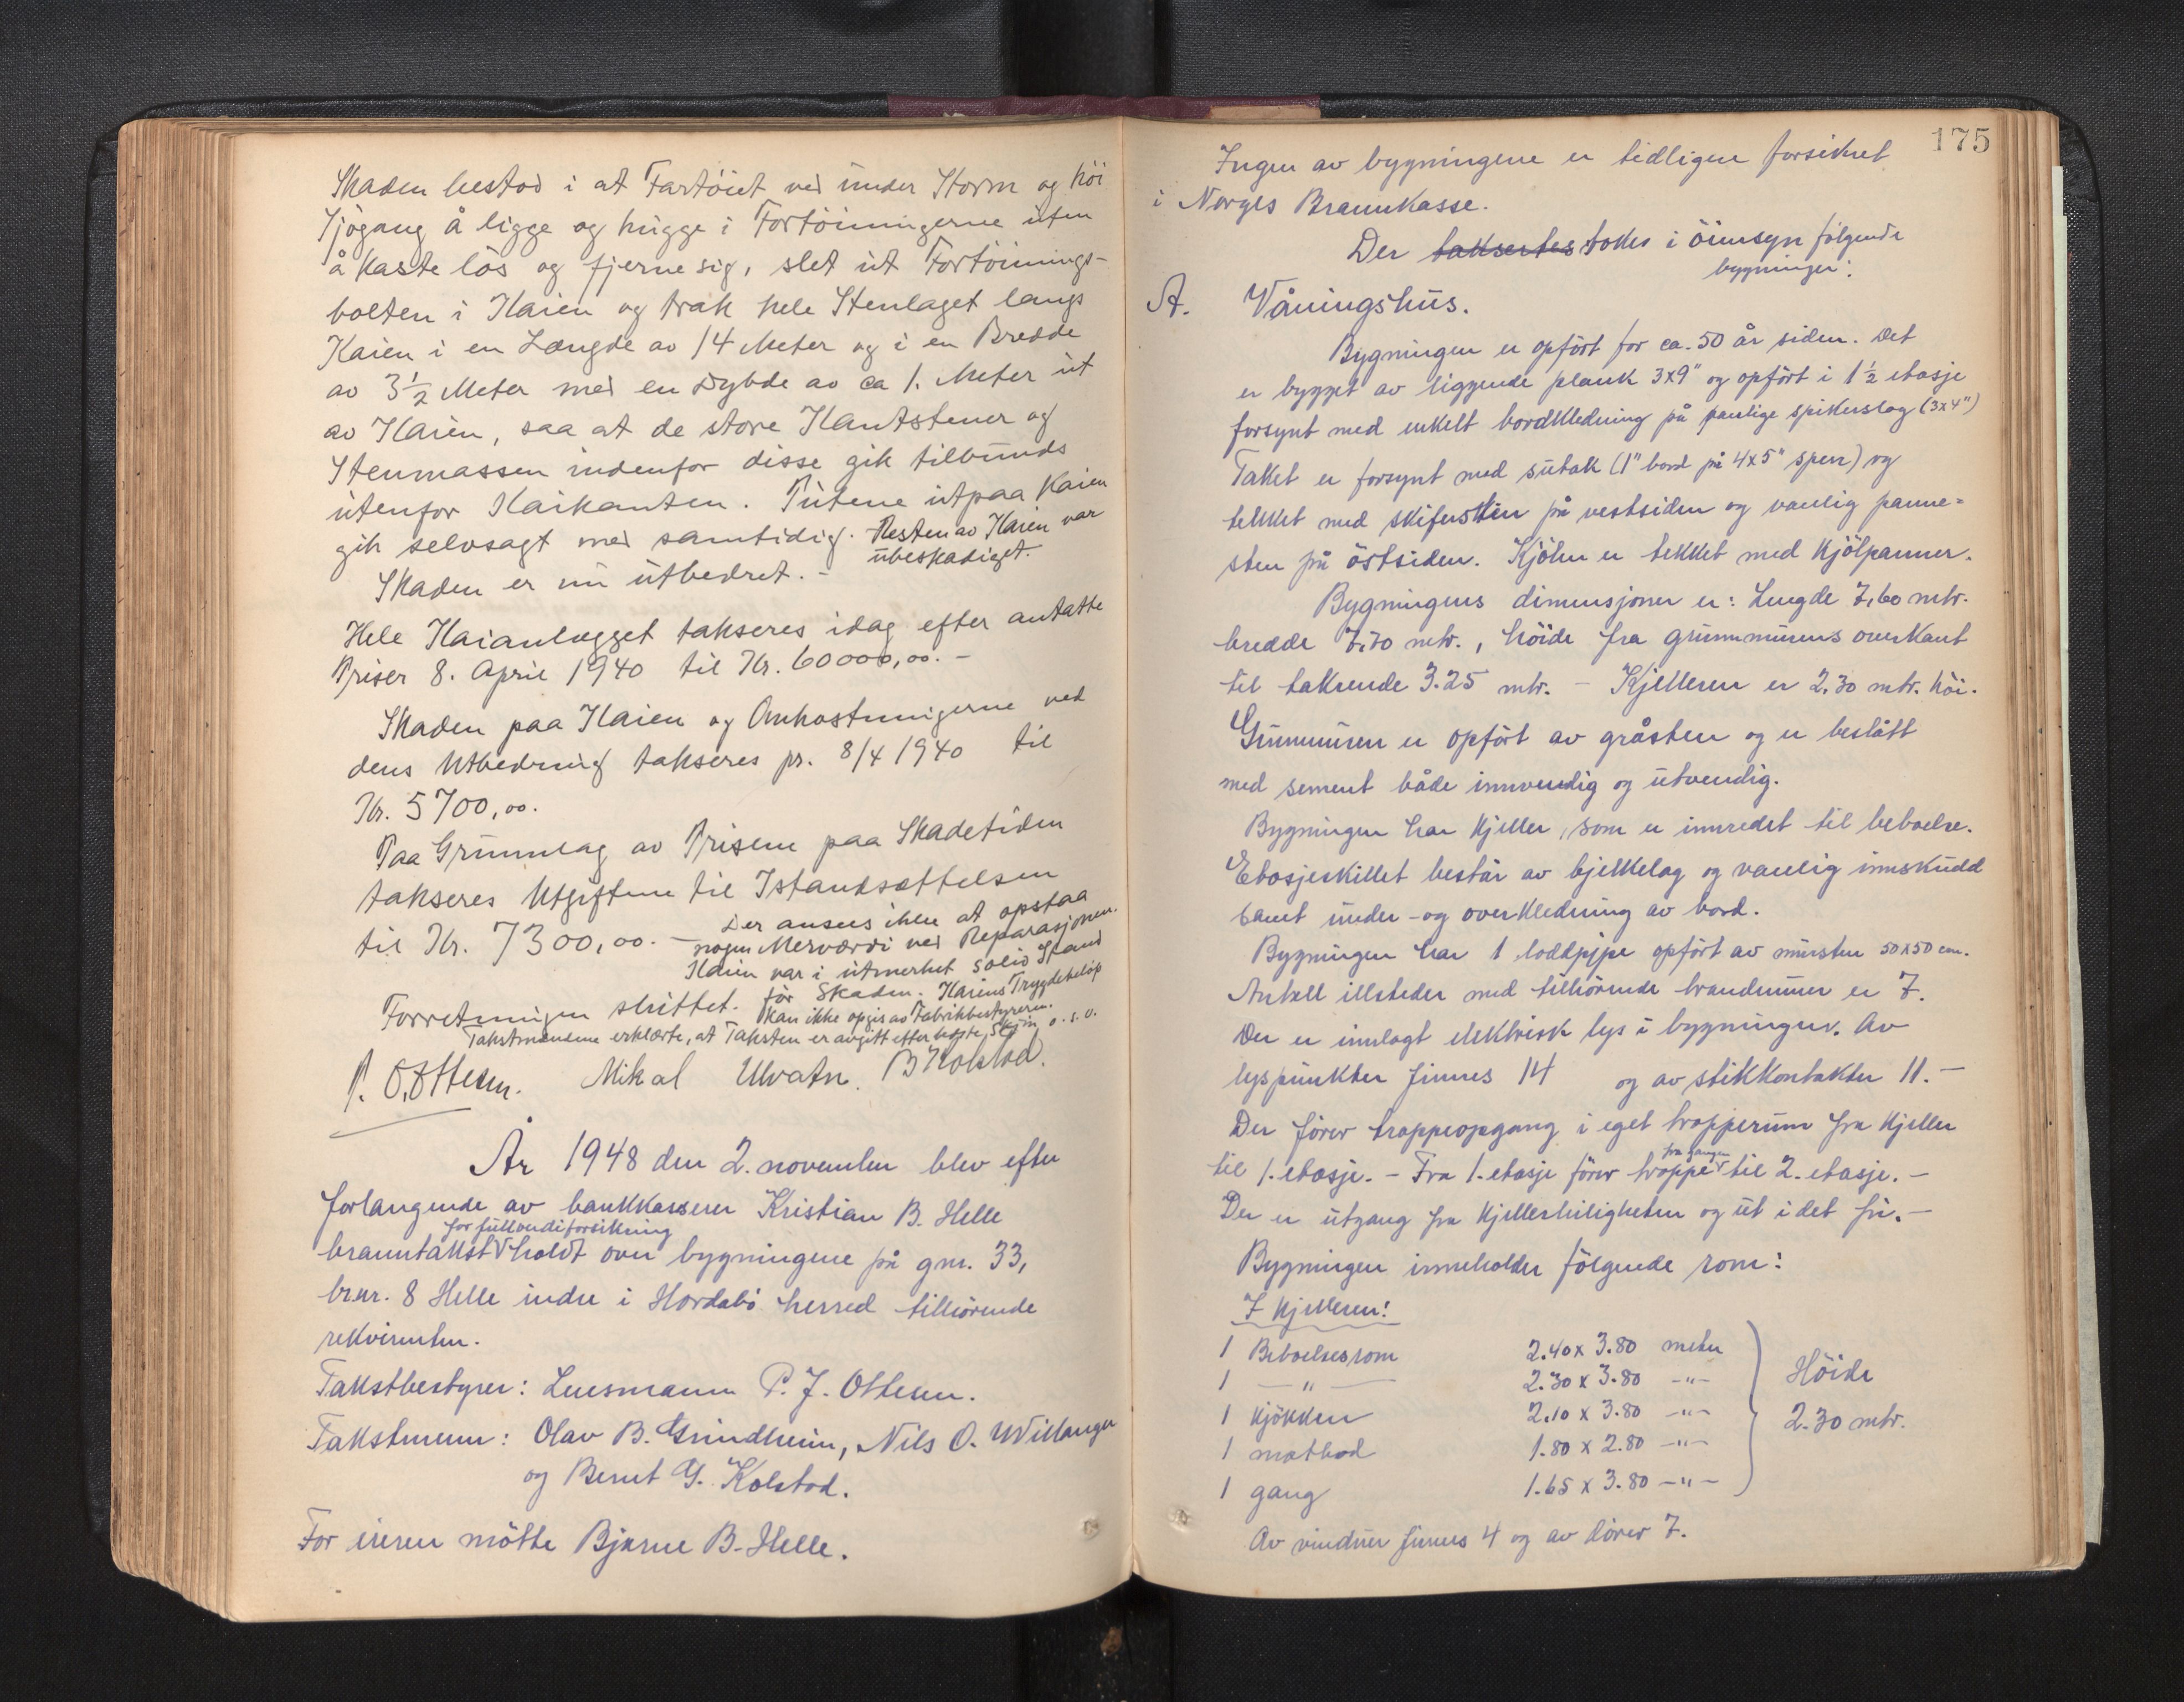 Skaden bestod i at Fartöiet ved under Storm og höi
Sjögang å ligge og hugge i Fortöiningerne uten
å kaste lös og fjerne sig, slet ut Fortöinings-
bolten i Kaien og trak hele Stenlaget langs
Kaien i en Længde av 14 Meter og i en Bredde
av 3½ Meter med en Dybde av ca 1. Meter ut
av Kaien, saa at de store Kantstener og
Stenmassen indenfor disse gik tilbunds
utenfor Kaikanten. Tutene utpaa Kaien
gik selvsagt med samtidig. Resten av Kaien var
ubeskadiget.
Skaden er nu utbedret. -
Hele Kaianlægget takseres idag efter antatte
Priser 8. April 1940 til Kr. 60000,00. -
Skaden paa Kaien og Omkostningerne ved
dens Utbedring takseres pr. 8/4 1940 til
Kr. 5700,00.
Paa Grunnlag av Prisene paa Skadetiden
takseres Utgiftene til Istandsættelsen
til Kr. 7300,00. - Der ansees ikke at opstaa
nogen Merværdi ved Reparasjonen.
Kaien var i utmerket solid Stand
för Skaden. Kaiens Trygdebelöp
kan ikke opgis av Fabrikbestyreren.
Forretningen sluttet.
Takstmændene erklærte, at Taksten er avgitt efter beste Skjön o.s.v.
P. O. Ottesen. Mikal Ulvatn. B Kolstad.
År 1948 den 2. november blev efter
forlangende av bankkasserer Kristian B. Helle
for fullverdiforsikring
branntakst holdt over bygningene på gnr. 33,
br.nr. 8 Helle indre i Hordabö herred tilhörende
rekvirenten.
Takstbestyrer: Lensmann P. J. Ottesen.
Takstmenn: Olav B. Grindheim, Nils O. Willanger
og Bernt G. Kolstad.
For eieren mötte Bjarne B. Helle.
175
Ingen av bygningene er tidligere forsikret
i Norges Brannkasse.
Der taksertes tokes i öiensyn fölgende
bygninger:
A. Våningshus.
Bygningen er opfört for ca. 50 år siden. Det
er bygget av liggende plank 3x9" og opfört i 1½ etasje
forsynt med enkelt bordkledning på vanlige spikerslag (3x4")
Taket er forsynt med sutak (1" bord på 4x5" sperr) og
tekket med skifersten på vestsiden og vanlig panne=
sten på östsiden. Kjölen er tekket med kjölpanner.
Bygningens dimensjoner er: Lengde 7,60 mtr.
bredde 7,70 mtr., höide fra grunnmurens overkant
til takrende 3.25 mtr. - Kjelleren er 2,30 mtr. höi.
Grunnmuren er opfört av gråsten og er beslått
med sement både innvendig og utvendig.
Bygningen har kjeller, som er innredet til beboelse.
Etasjeskillet består av bjelkelag og vanlig innskudd
samt under- og overkledning av bord.
Bygningen har 1 loddpipe opfört av mursten 50x50 cm.
Antall illsteder med tilhörende brandmurer er 7.
Der er innlagt elektrisk lys i bygningen. Av
lyspunkter finnes 14 og av stikkontakter 11. -
Der förer trappeopgang i eget trapperum fra kjeller
fra gangen
til 1. etasje. - Fra 1. etasje förer trappe til 2. etasje. -
Der er utgang fra kjellerleiligheten og ut i det fri. -
Bygningen inneholder fölgende rom:
I kjelleren:
1 Beboelsesrom 2.40 x 3.80 meter
1 — " — 2.30 x 3.80 -"-
1 kjökken 2.10 x 3.80 -"-
1 matbod 1.80 x 2.80 -"-
1 gang 1.65 x 3.80 -"-
Höide
2.30 mtr.
Av vinduer finnes 4 og av dörer 7.